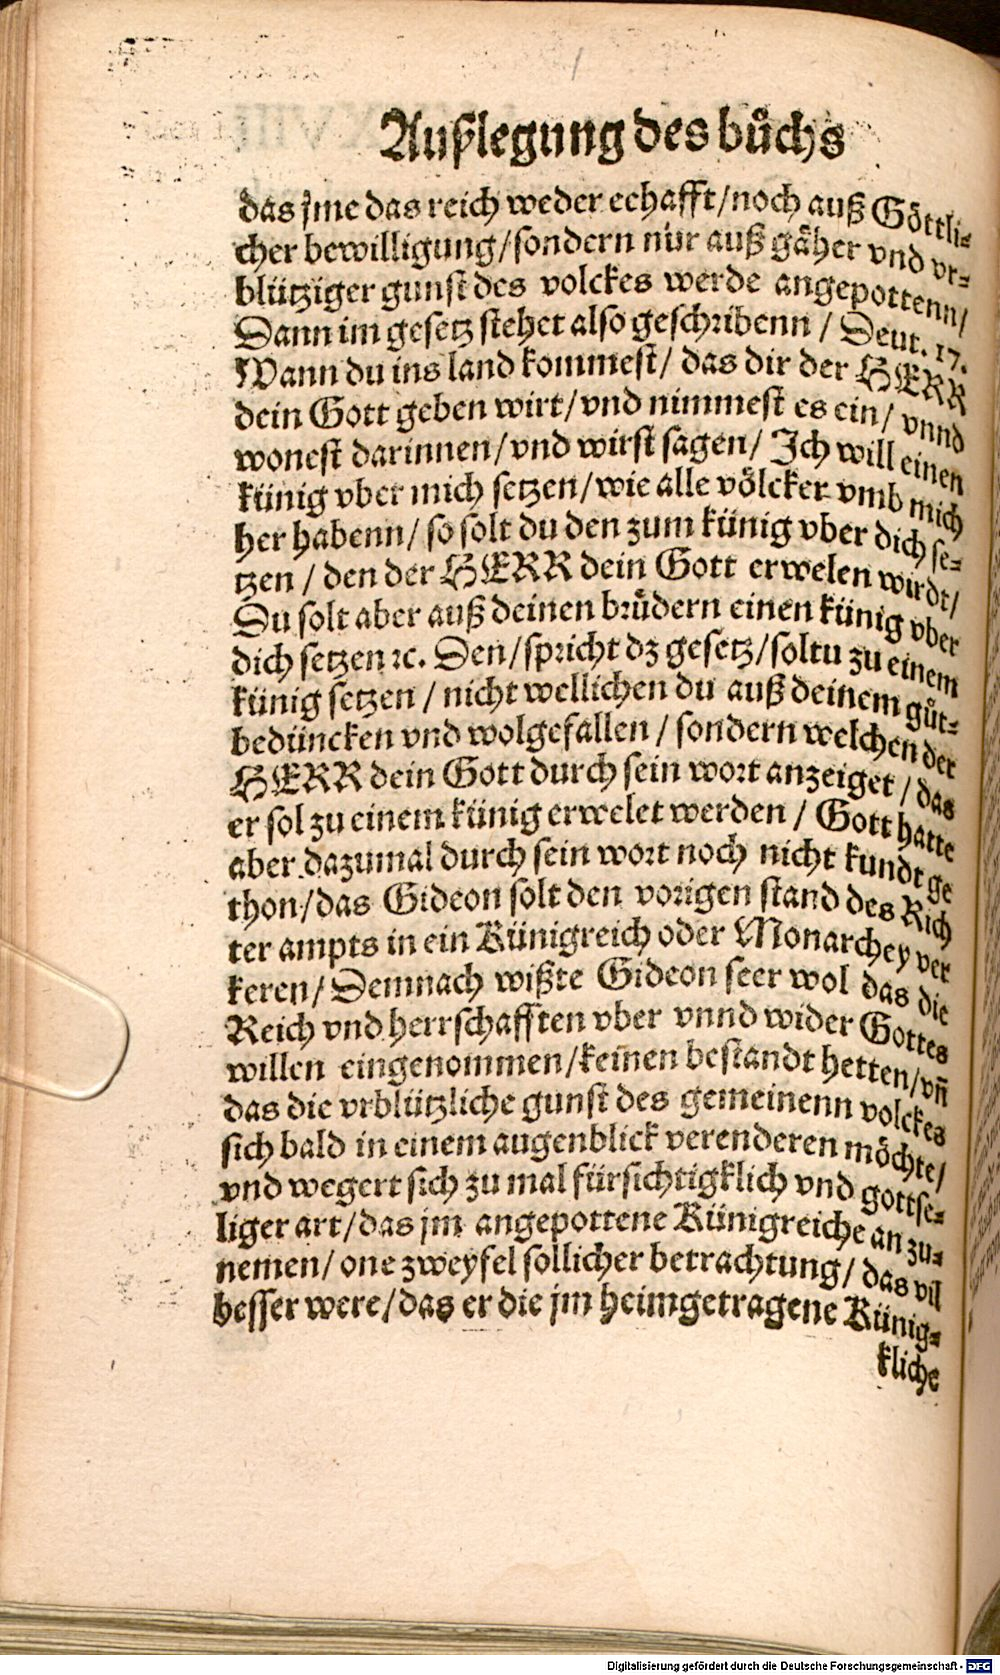 Außlegung des bůchs
das jme das reich weder eehafft/noch auß Göttli-
cher bewilligung/sondern nůr auß gäher vnd vr-
blütziger gunst des volckes werde angepottenn/
Dann im gesetz stehet also geschribenn / Deut. 17.
Wann du ins land kommest/ das dir der HERR
dein Gott geben wirt/vnd nimmest es ein/ vnnd
wonest darinnen/vnd wirst sagen/ Ich will einen
künig vber mich setzen/wie alle völcker vmb mich
her habenn/ so solt du den zum künig vber dich se-
tzen / den der HERR dein Gott erwelen wirdt/
Du solt aber auß deinen brůdern einen künig vber
dich setzen ꝛc. Den/spricht dz gesetz/soltu zu einem
künig setzen / nicht wellichen du auß deinem gůt-
bedüncken vnd wolgefallen / sondern welchen der
HERR dein Gott durch sein wort anzeiget / das
er sol zu einem künig erwelet werden / Gott hatte
aber dazumal durch sein wort noch nicht kundt ge
thon/das Gideon solt den vorigen stand des Rich
ter ampts in ein Künigreich oder Monarchey ver
keren/ Demnach wißte Gideon seer wol das die
Reich vnd herrschafften vber vnnd wider Gottes
willen eingenommen/keinen bestandt hetten/vñ
das die vrblützliche gunst des gemeinenn volckes
sich bald in einem augenblick verenderen möchte/
vnd wegert sich zu mal fürsichtigklich vnd gottse-
liger art/das jm angepottene Künigreiche an zu-
nemen/ one zweyfel sollicher betrachtung/ das vil
besser were/das er die jm heimgetragene Künig-
kliche
Digitalisierung gefördert durch die Deutsche Forschungsgemeinschaft - DFG